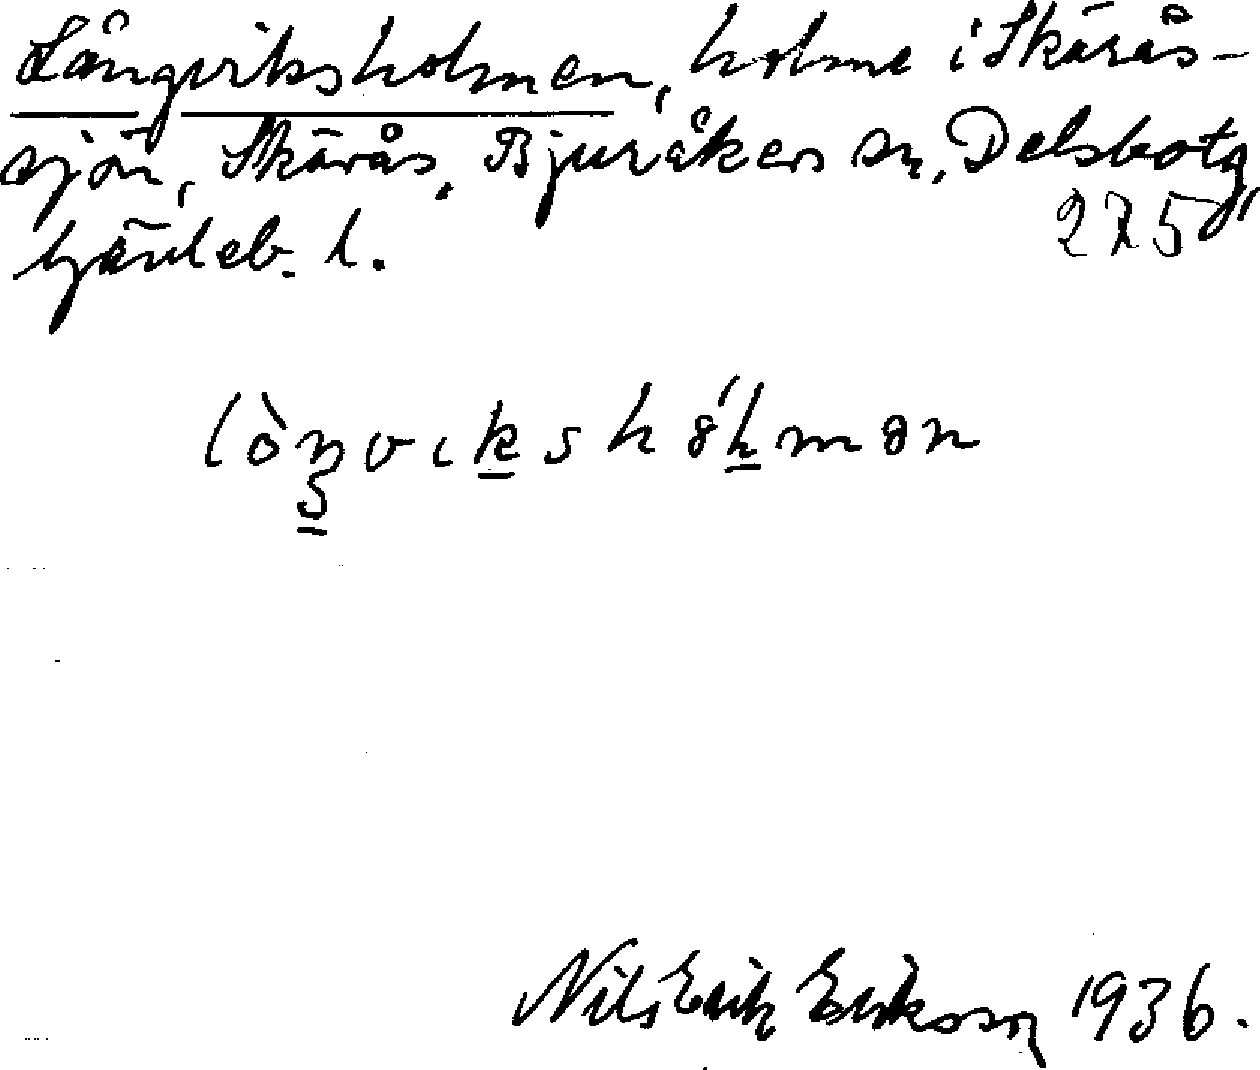 Långviksholmen, holme i Skärås-
sjön, Skärås, Bjuråkers sn, Delsbo tg,
Gävleb. l. 275
lòŋvɩkshó̤lmən
Nils Erik Eriksson 1936.